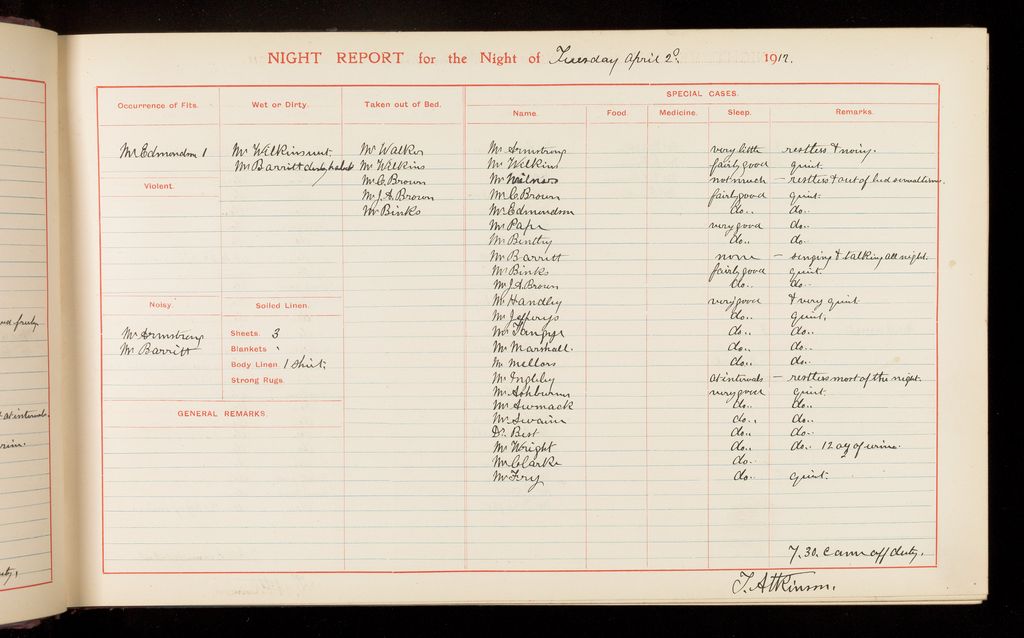 NIGHT REPORT for the Night of Tuesday April 2º. 1912.
Occurrence of Fits.
Wet or Dirty.
Taken out of Bed.
SPECIAL CASES.
Name.
Food
Medicine.
Sleep.
Remarks.
Mr Edmondson 1
Mr Wilkins wet.
Mr Barritt dirty habit
Mr Walker
Mr Wilkins
Mr C. Brown
Mr J. A. Brown
Mr Binks
Violent.
Noisy.
Mr Armstrong
Mr Barritt
Soiled Linen.
Sheets. 3
Blankets
Body Linen 1 Shirt.
Strong Rugs.
GENERAL REMARKS.
Mr Armstrong very little restless & noisy.
Mr Wilkins fairly good quiet.
Mr not much – restless & out of bed
Mr C. Brown fairly good quiet.
Mr Edmondson do.. do..
Mr Pape very good do..
Mr Bentley do.. do.
Mr Barritt none – singing & talking all night.
Mr Binks fairly good quiet.
Mr J. A. Brown do.. do..
Mr Handley very good & very quiet
Mr Jefferys do.. quiet.
Mr do.. do..
Mr Marshall. do.. do..
Mr Mellors do.. do..
Mr Ingleby at intervals – restless most of the night.
Mr Ashburn very good quiet.
Mr Awmack do.. do..
Mr Swain do.. do..
Dr. Best do.. do..
Mr Wright do.. do.. 12 oz of urine.
Mr Clarke do..
Mr Fry do.. quiet.
7.30. Came off duty.
T. Atkinson.